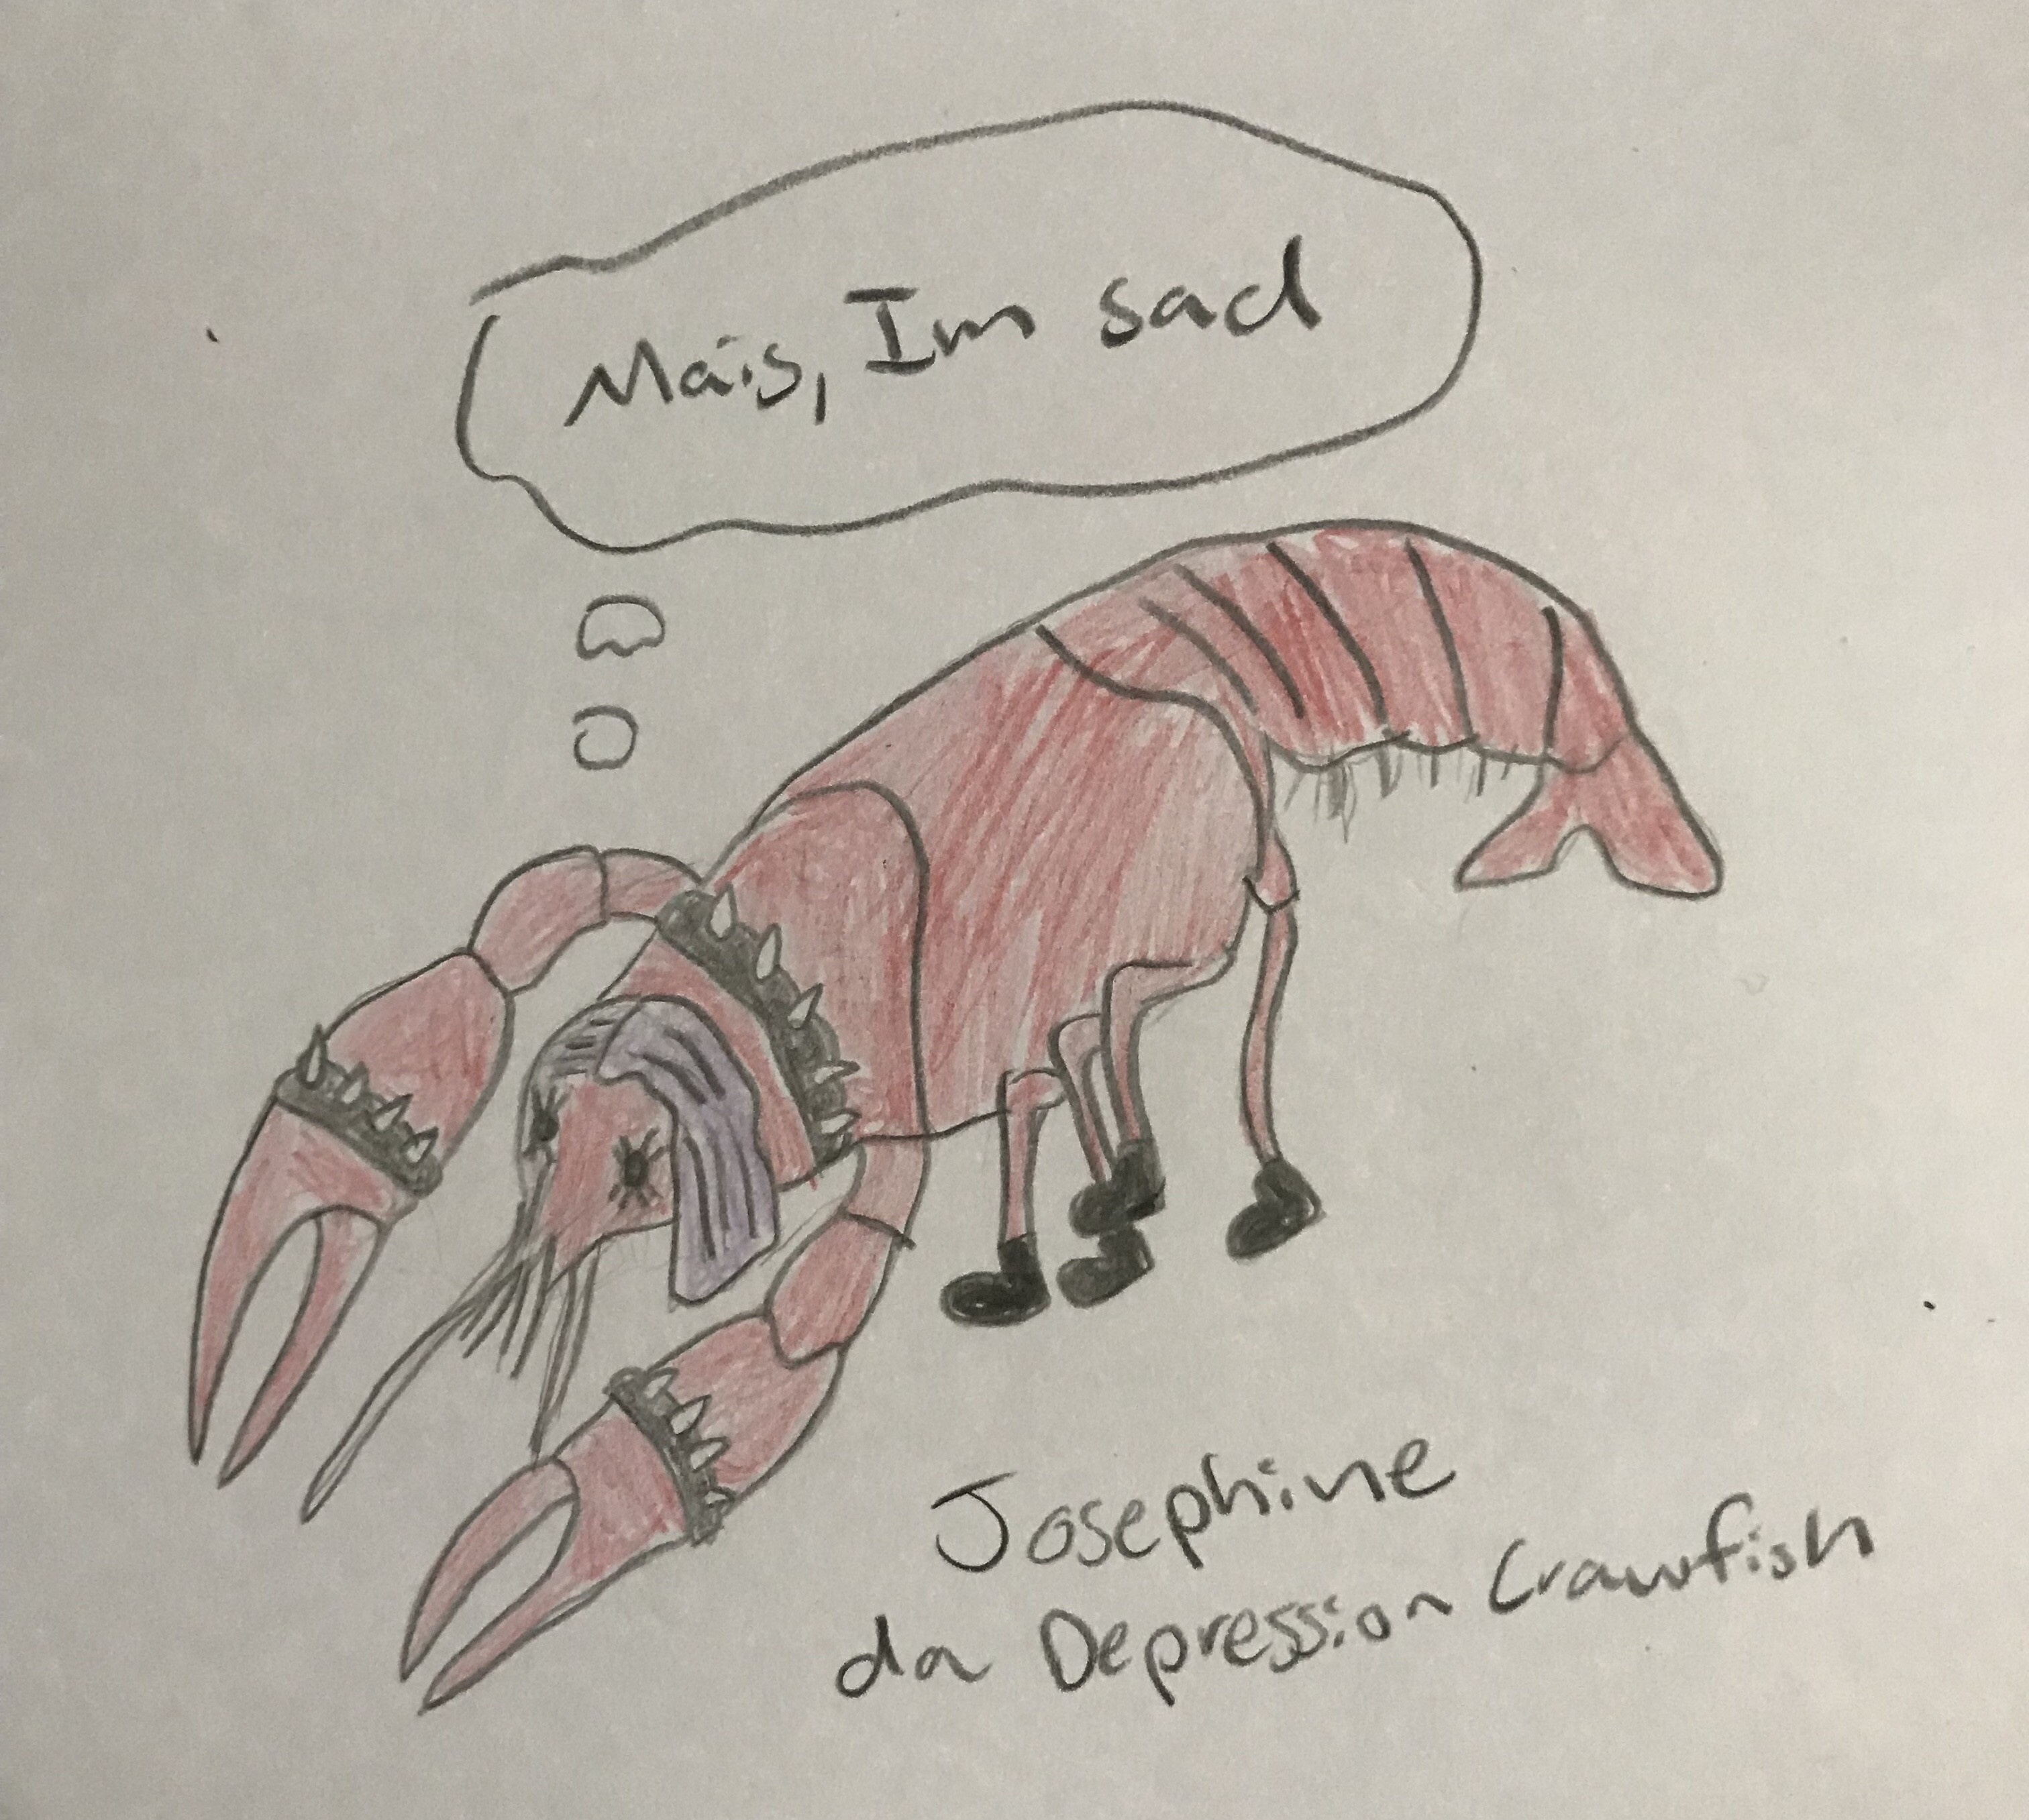 Mais, Im sad
Josephine
da Depression Crawfish